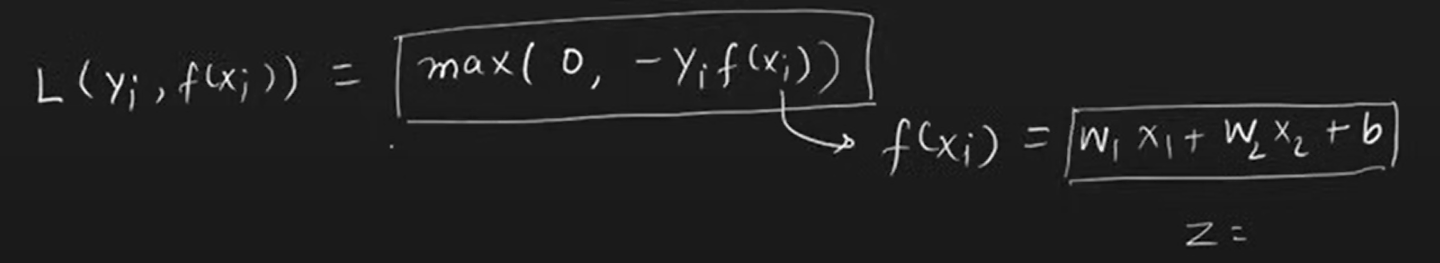 L(yᵢ, f(xᵢ)) = max(0, -yᵢf(xᵢ))
f(xᵢ) = W₁x₁ + W₂x₂ + b
z =